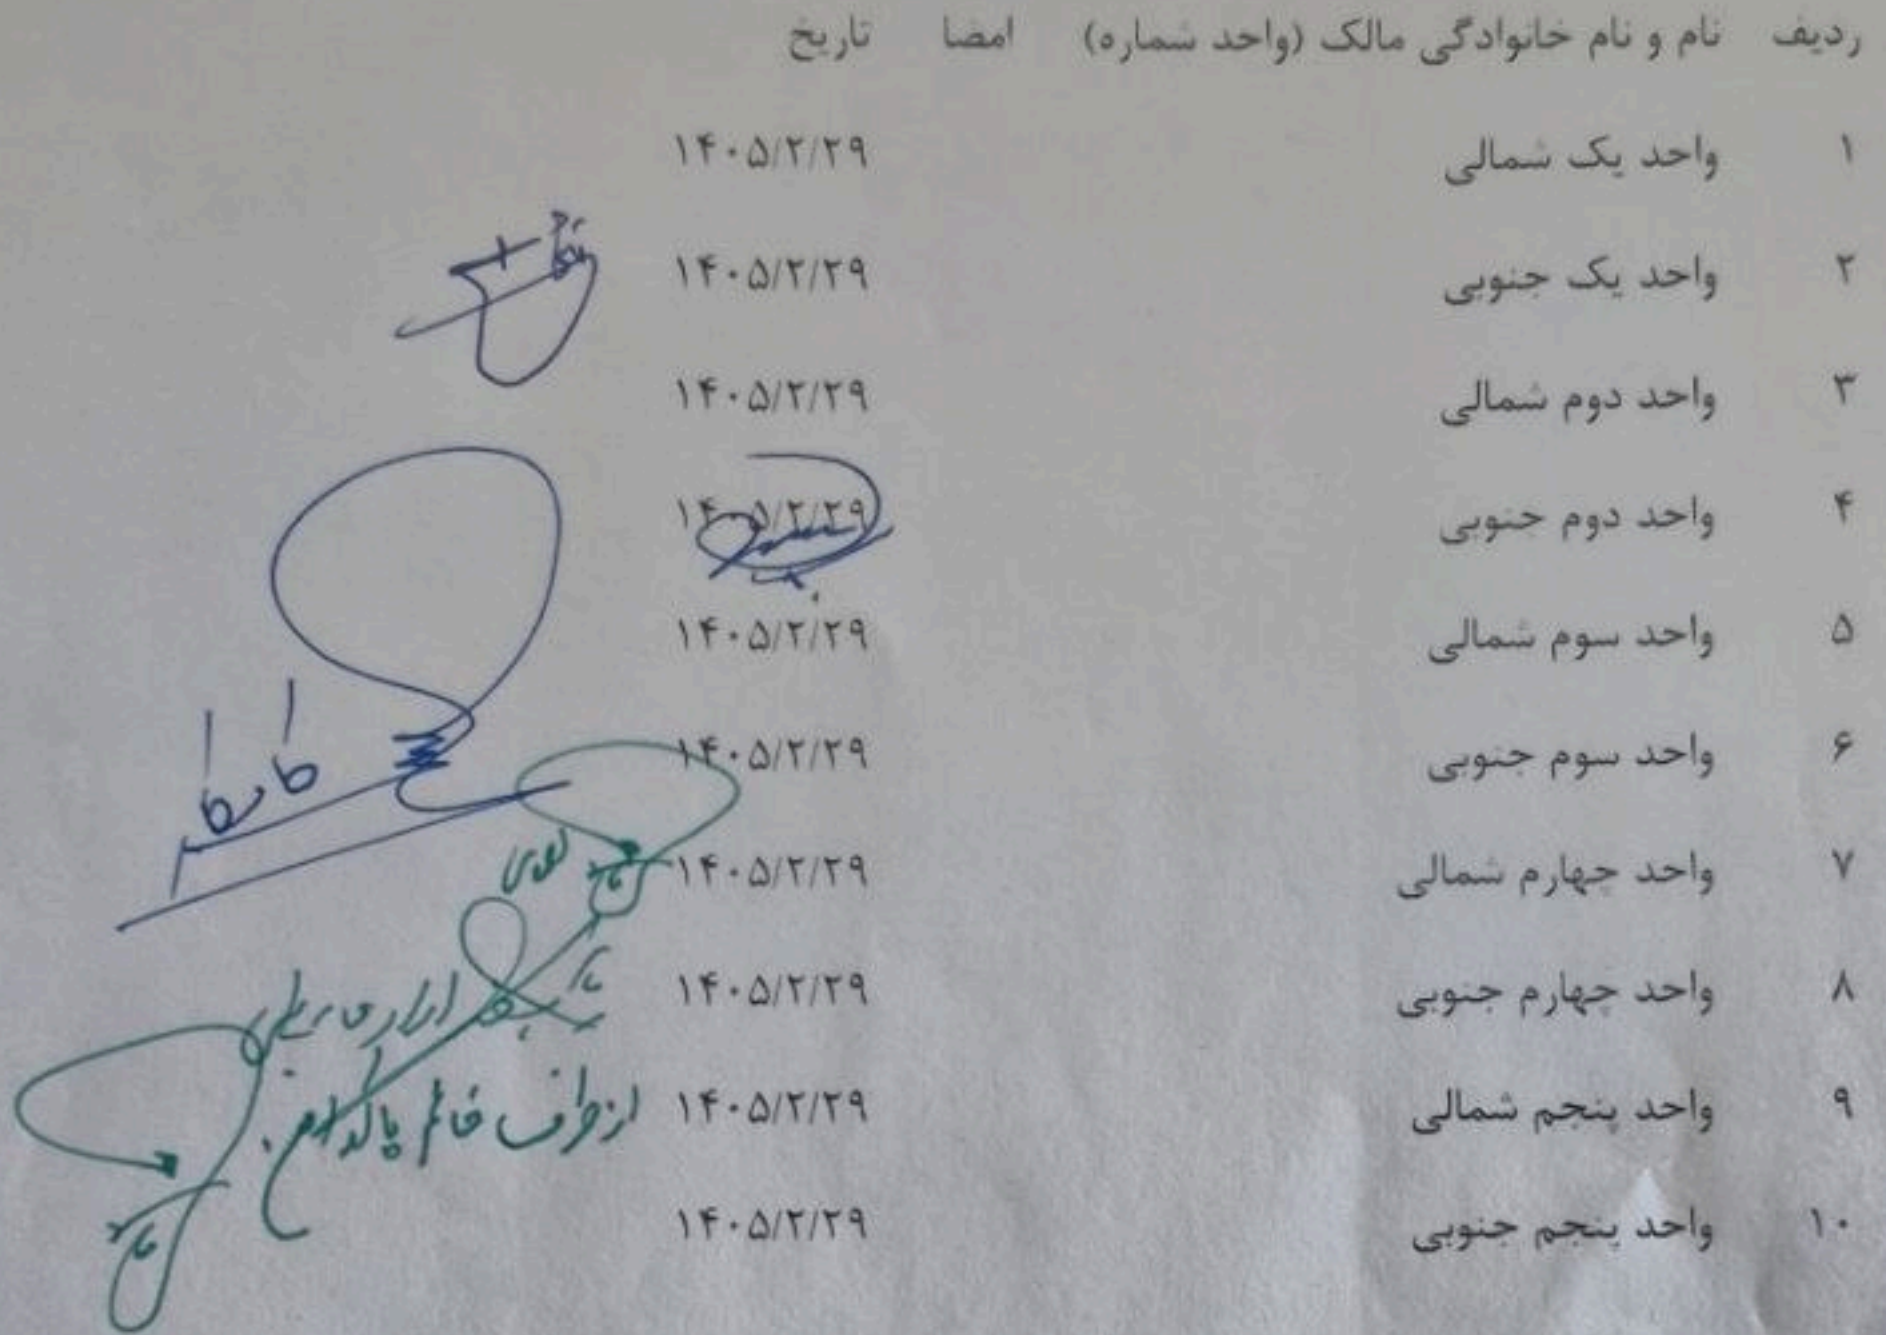 ردیف نام و نام خانوادگی مالک (واحد شماره) امضا تاریخ
۱ واحد یک شمالی ۱۴۰۵/۲/۲۹
۲ واحد یک جنوبی ۱۴۰۵/۲/۲۹
۳ واحد دوم شمالی ۱۴۰۵/۲/۲۹
۴ واحد دوم جنوبی ۱۴۰۵/۲/۲۹
۵ واحد سوم شمالی ۱۴۰۵/۲/۲۹
۶ واحد سوم جنوبی ۱۴۰۵/۲/۲۹
۷ واحد چهارم شمالی ۱۴۰۵/۲/۲۹
۸ واحد چهارم جنوبی ۱۴۰۵/۲/۲۹
۹ واحد پنجم شمالی ۱۴۰۵/۲/۲۹ از طرف خانم
۱۰ واحد پنجم جنوبی ۱۴۰۵/۲/۲۹